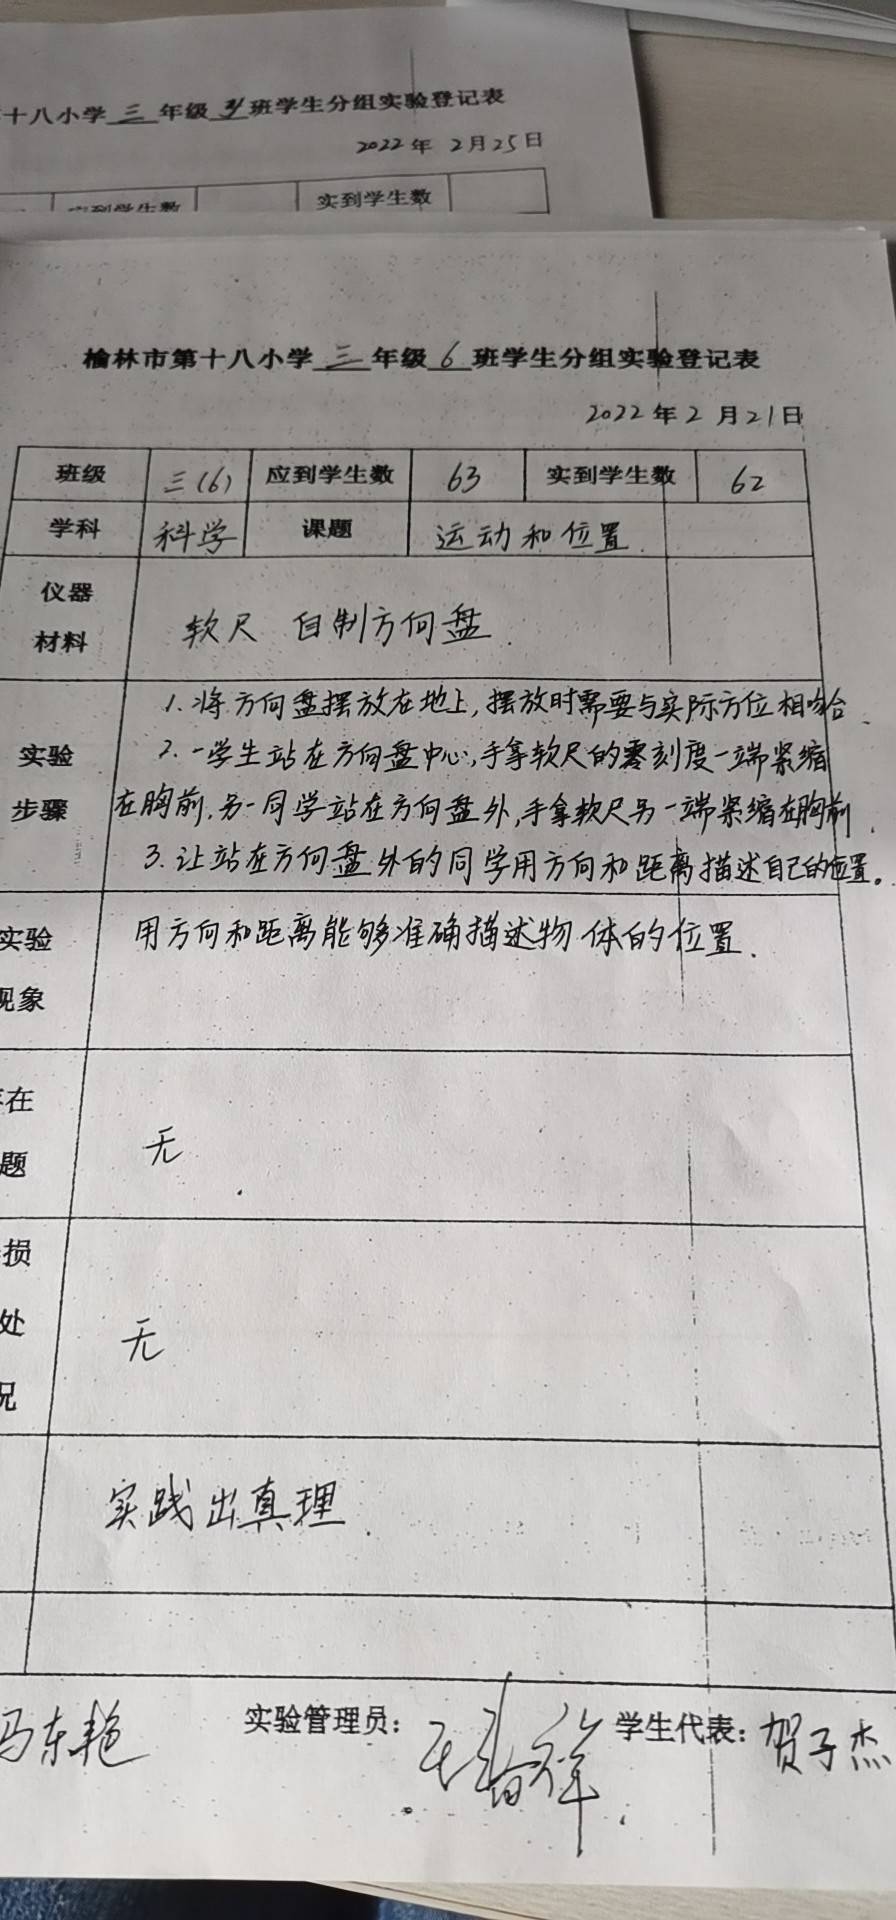 十八小学 三 年级 班学生分组实验登记表
2022年 2月25日
到学生数 实到学生数
榆林市第十八小学 三 年级 6 班学生分组实验登记表
2022年2月21日
班级 三(6) 应到学生数 63 实到学生数 62
学科 科学 课题 运动和位置
仪器
材料
软尺 自制方向盘
1.将方向盘摆放在地上,摆放时需要与实际方位相吻合.
实验
步骤
2.一学生站在方向盘中心,手拿软尺的零刻度一端紧缩
在胸前.另一同学站在方向盘外,手拿软尺另一端紧缩在胸前.
3.让站在方向盘外的同学用方向和距离描述自己的位置。
实验
现象
用方向和距离能够准确描述物体的位置.
在
题
无
损
处
况
无
实践出真理.
冯东艳 实验管理员: 学生代表: 贺子杰